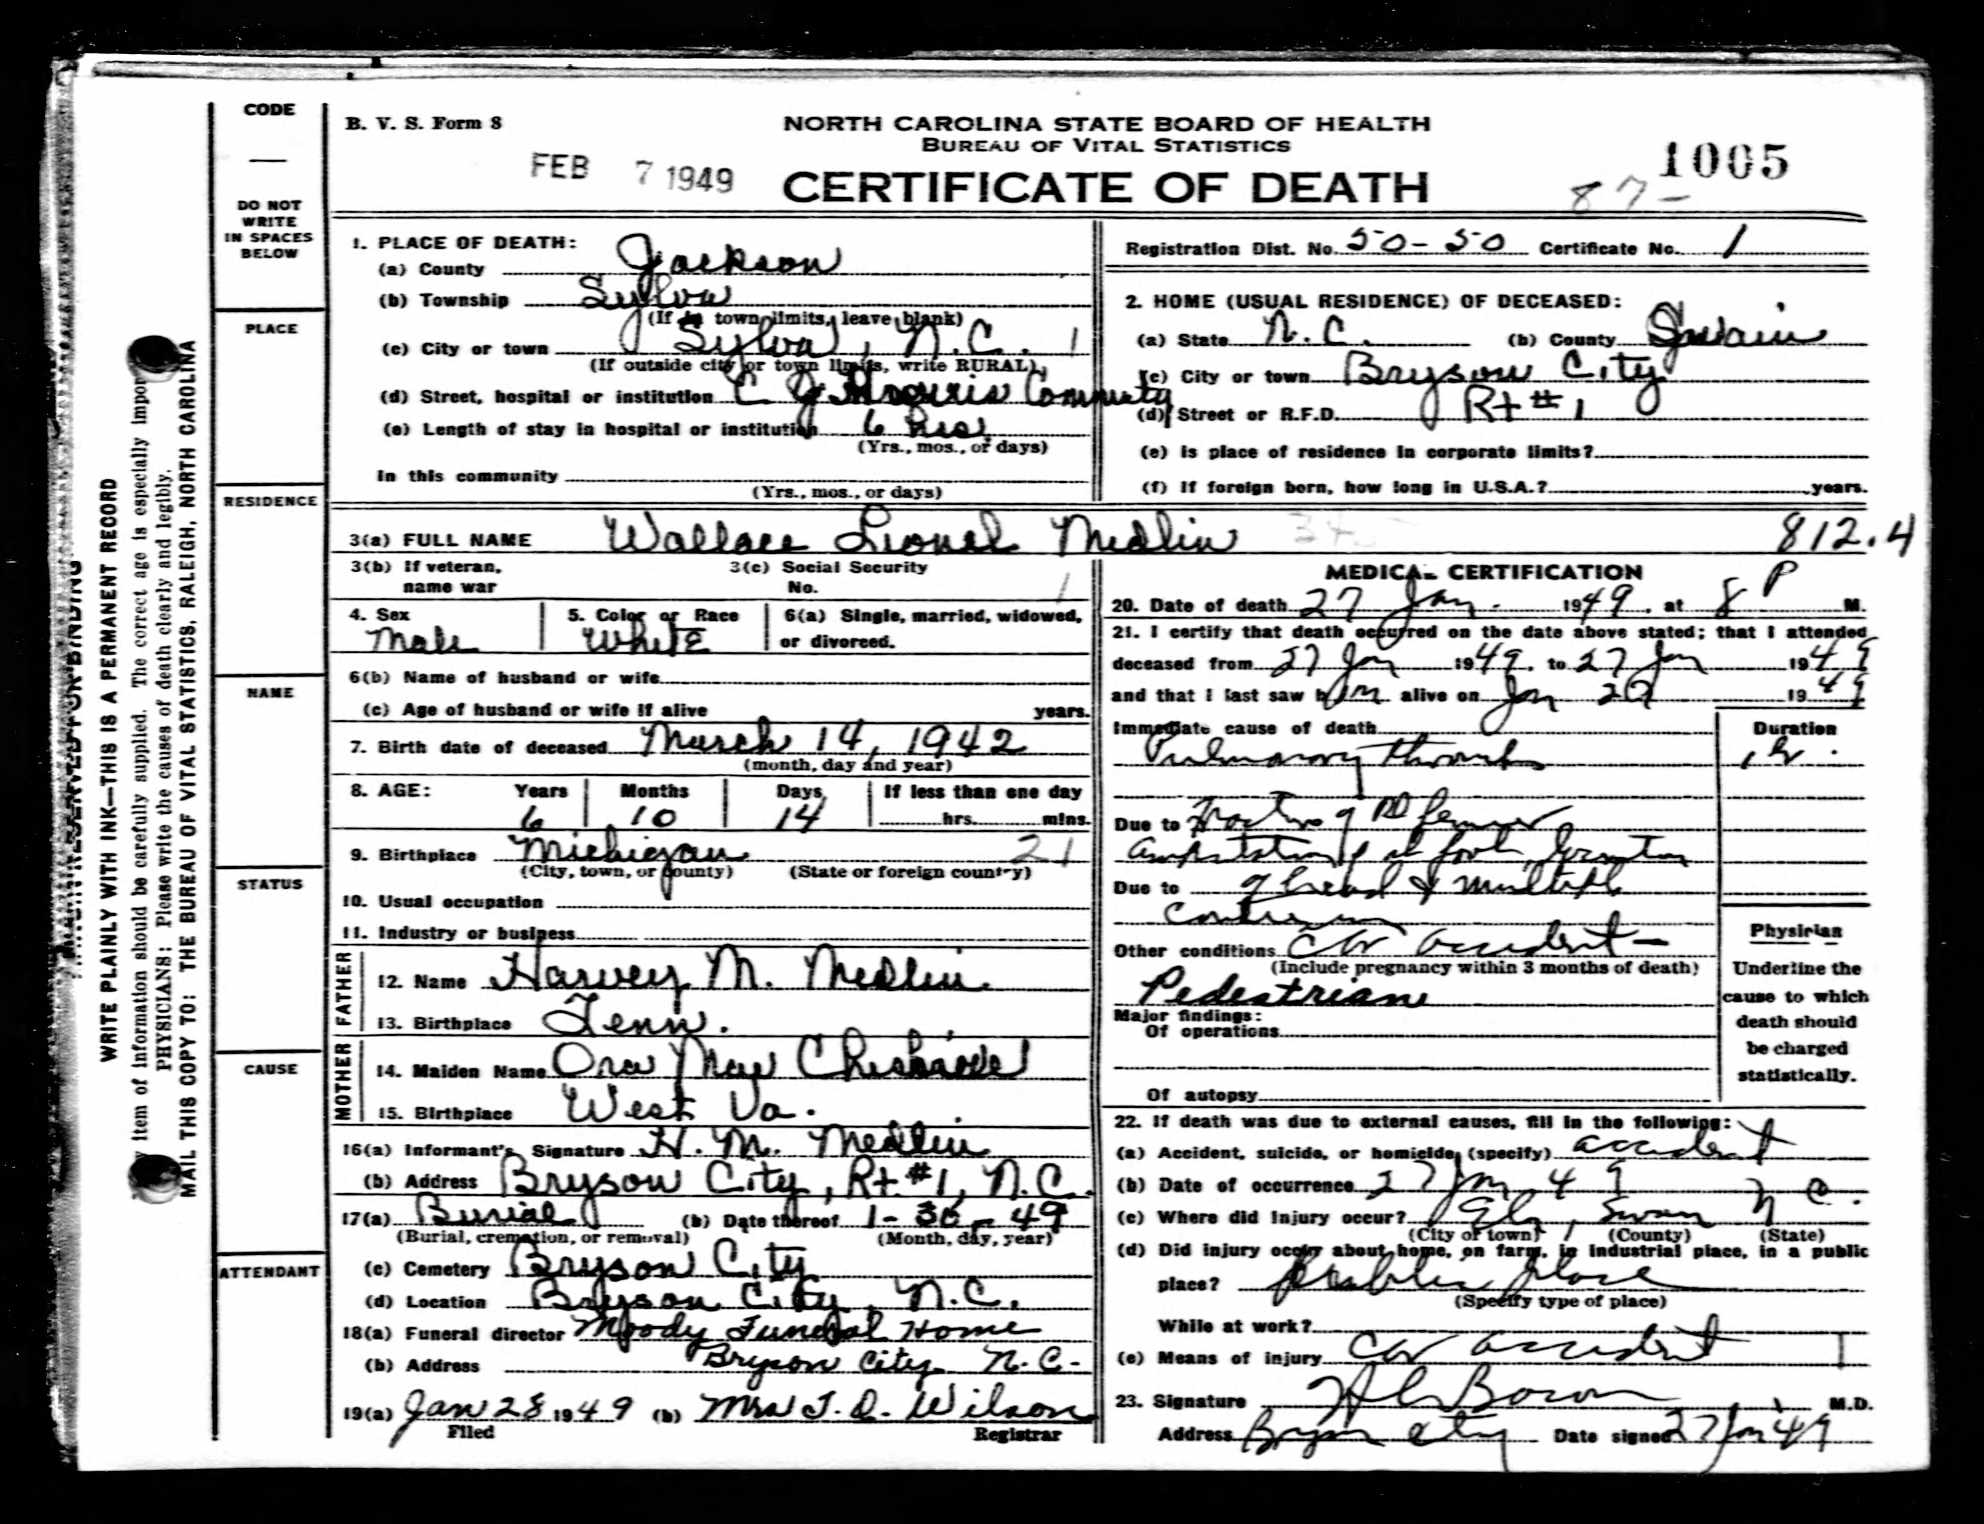 CODE
DO NOT
WRITE
IN SPACES
BELOW
PLACE
RESIDENCE
NAME
STATUS
CAUSE
ATTENDANT
WRITE PLAINLY WITH INK—THIS IS A PERMANENT RECORD
item of information should be carefully supplied. The correct age is especially impor
PHYSICIANS: Please write the causes of death clearly and legibly.
MAIL THIS COPY TO: THE BUREAU OF VITAL STATISTICS, RALEIGH, NORTH CAROLINA
B. V. S. Form 8
NORTH CAROLINA STATE BOARD OF HEALTH
BUREAU OF VITAL STATISTICS
FEB 7 1949
CERTIFICATE OF DEATH
1005
87-
1. PLACE OF DEATH:
(a) County Jackson
(b) Township Sylva
(If in town limits, leave blank)
(c) City or town Sylva, N.C. 1
(If outside city or town limits, write RURAL)
(d) Street, hospital or institution C J Harris Community
(e) Length of stay in hospital or institution 6 hrs
(Yrs., mos., or days)
In this community
(Yrs., mos., or days)
Registration Dist. No. 50-50 Certificate No. 1
2. HOME (USUAL RESIDENCE) OF DECEASED:
(a) State N.C. (b) County Swain
(c) City or town Bryson City
(d) Street or R.F.D. Rt #1
(e) Is place of residence in corporate limits?
(f) If foreign born, how long in U.S.A.? years.
3(a) FULL NAME Wallace Lionel Medlin 812.4
3(b) If veteran, name war
3(c) Social Security No. 1
4. Sex Male
5. Color or Race White
6(a) Single, married, widowed, or divorced.
6(b) Name of husband or wife
(c) Age of husband or wife if alive years.
7. Birth date of deceased March 14, 1942
(month, day and year)
8. AGE: Years Months Days If less than one day
6 10 14 hrs. mins.
9. Birthplace Michigan 21
(City, town, or county) (State or foreign country)
10. Usual occupation
11. Industry or business
FATHER
12. Name Harvey M. Medlin
13. Birthplace Tenn.
MOTHER
14. Maiden Name Ora Mae
15. Birthplace West Va.
16(a) Informant's Signature H. M. Medlin
(b) Address Bryson City, Rt #1, N.C.
17(a) Burial (b) Date thereof 1-30-49
(Burial, cremation, or removal) (Month, day, year)
(c) Cemetery Bryson City
(d) Location Bryson City, N.C.
18(a) Funeral director Moody Funeral Home
(b) Address Bryson City N.C.
19(a) Jan 28 1949 (b) Mrs T. D. Wilson
Filed Registrar
MEDICAL CERTIFICATION
20. Date of death 27 Jan. 1949. at 8 P M.
21. I certify that death occurred on the date above stated; that I attended
deceased from 27 Jan 1949. to 27 Jan 1949
and that I last saw him alive on Jan 27 1949
Immediate cause of death
Pulmonary
Duration
1 hr.
Due to of femur
Amputation of foot
Due to of head & multiple
Other conditions car accident—
(Include pregnancy within 3 months of death)
Pedestrian
Major findings:
Of operations
Of autopsy
Physician
Underline the
cause to which
death should
be charged
statistically.
22. If death was due to external causes, fill in the following:
(a) Accident, suicide, or homicide (specify) accident
(b) Date of occurrence 27 Jan 49
(c) Where did injury occur? Ela, Swain N C.
(City or town) (County) (State)
(d) Did injury occur about home, on farm, in industrial place, in a public
place? public place
(Specify type of place)
While at work?
(e) Means of injury car accident
23. Signature M.D.
Address Bryson City Date signed 27 Jan 49